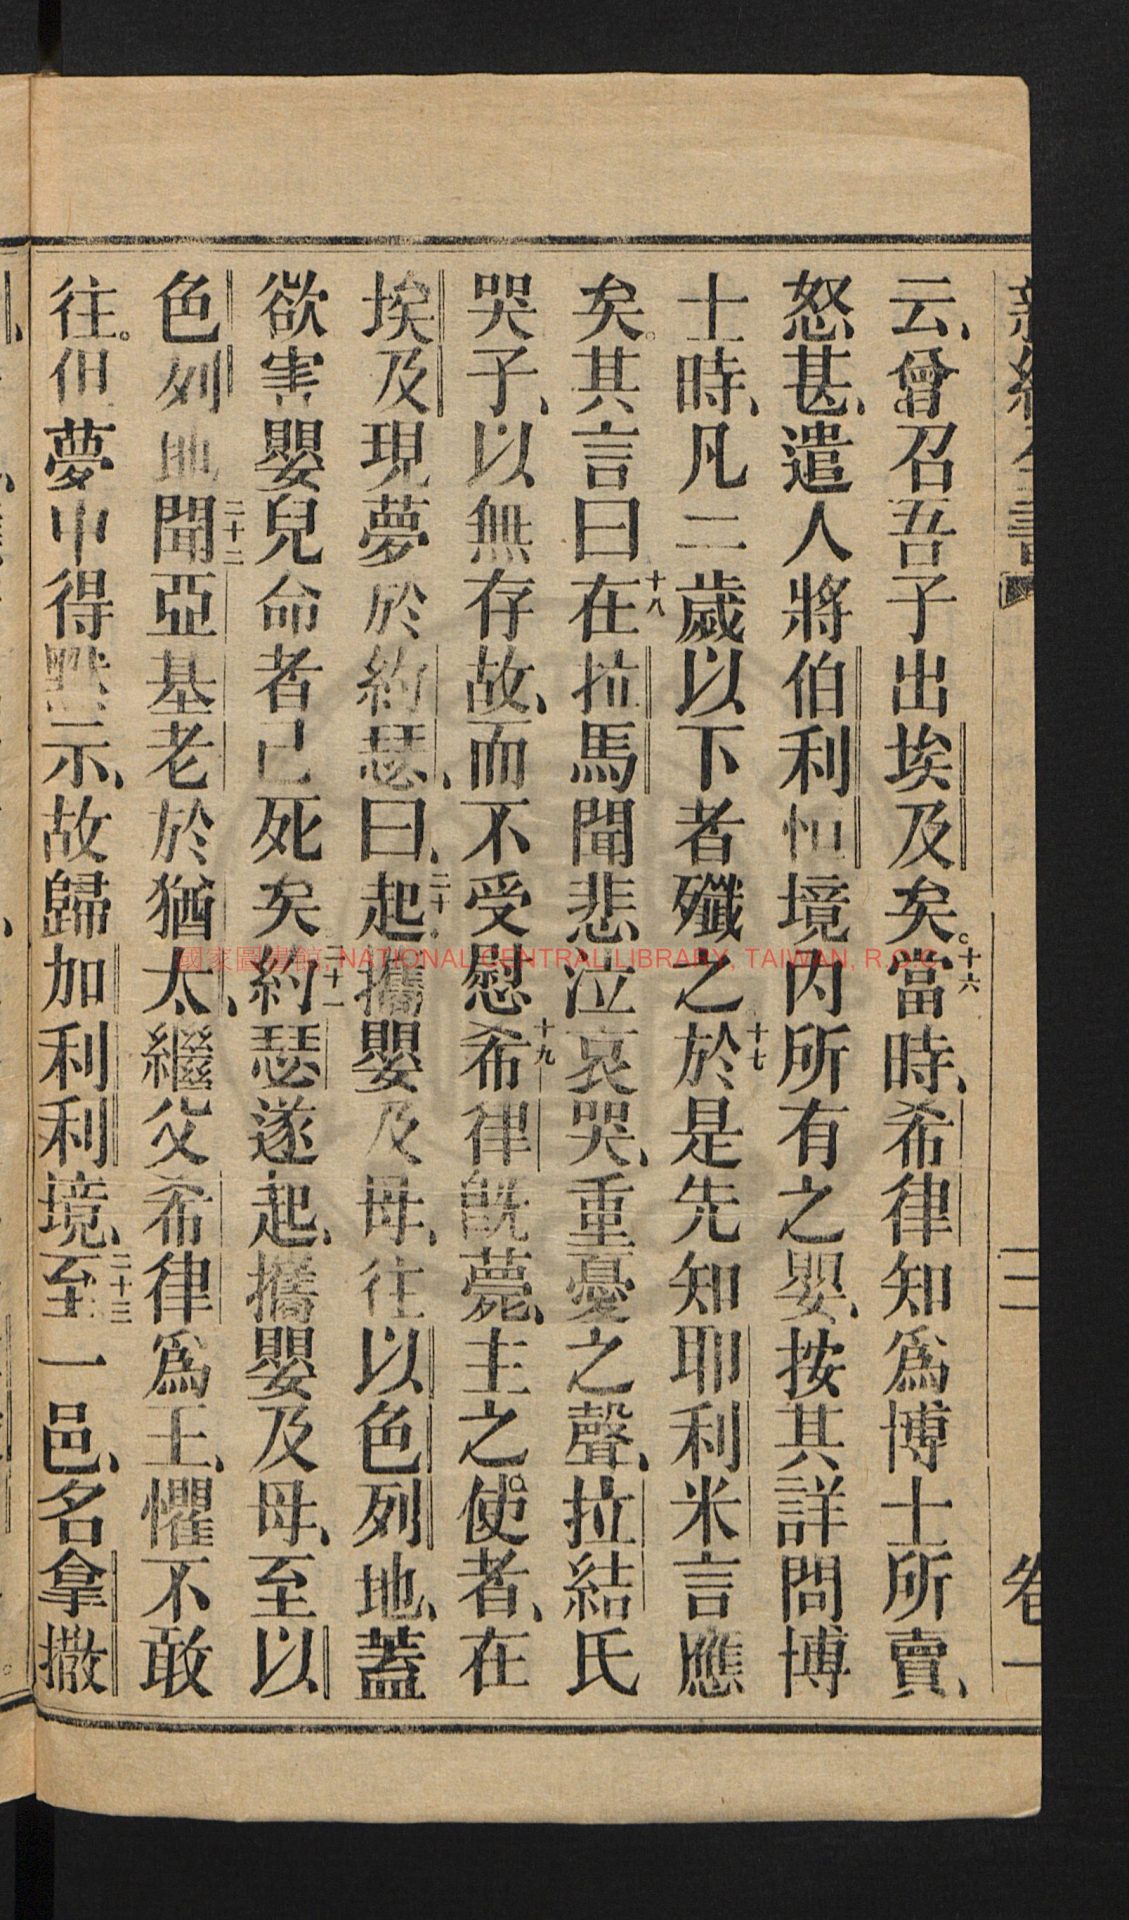 云、曾召吾子出埃及矣。十六當時、希律知爲博士所賣、
怒甚、遣人將伯利恒境內所有之嬰、按其詳問博
士時、凡二歲以下者殲之十七於是先知耶利米言應
矣。其言曰十八在拉馬聞悲泣哀哭、重憂之聲、拉結氏
哭子、以無存故、而不受慰十九希律旣薨、主之使者、在
埃及現夢於約瑟、曰、二十起、攜嬰及母、往以色列地、蓋
欲害嬰兒命者已死矣二十一約瑟遂起、攜嬰及母、至以
色列地二十二聞亞基老於猶太、繼父希律爲王、懼不敢
往。但夢中得默示、故歸加利利境、二十三至一邑、名拿撒
卷一
二
國家圖書館 NATIONAL CENTRAL LIBRARY, TAIWAN, R.O.C.